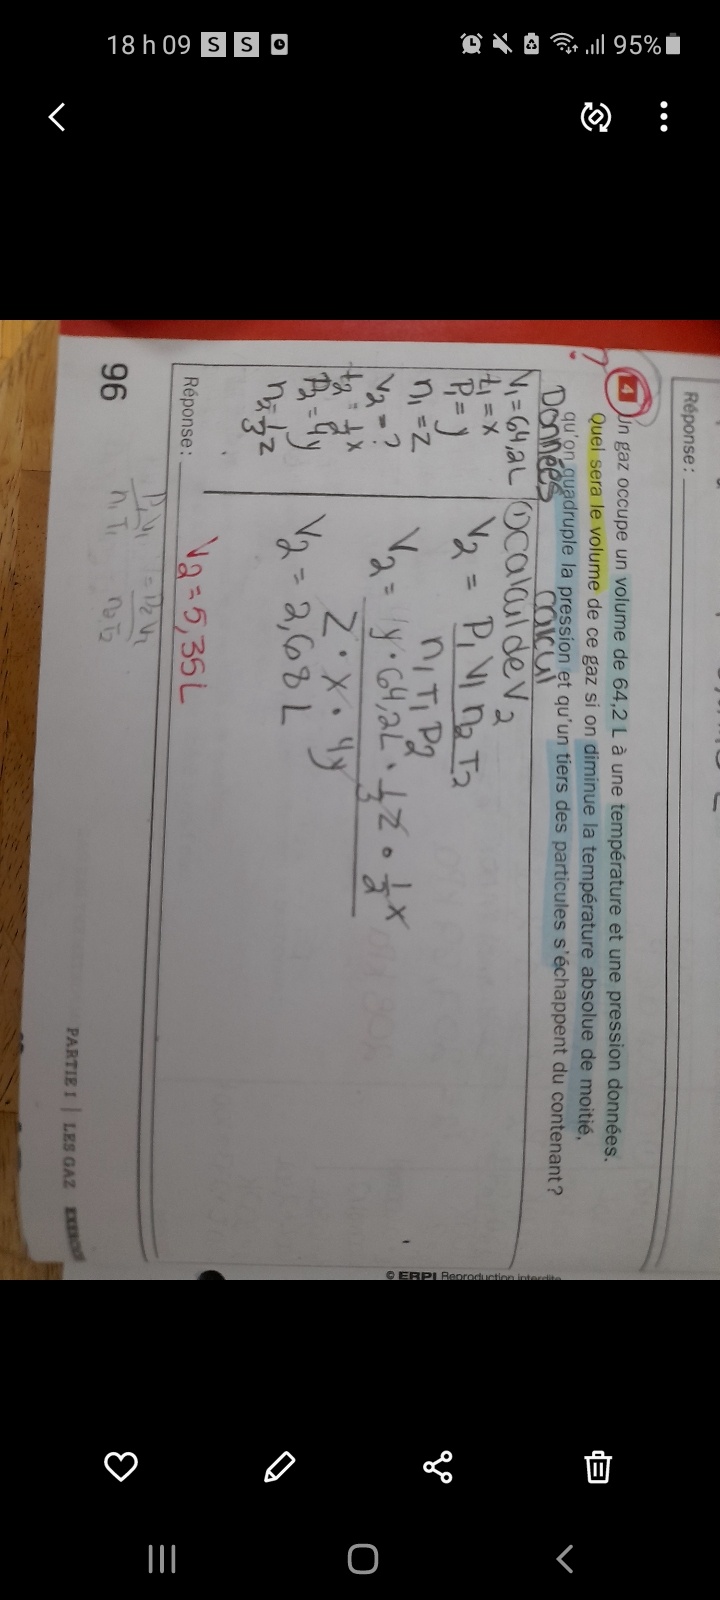 18 h 09 S S 95%
Réponse:
4 Un gaz occupe un volume de 64,2 L à une température et une pression données.
Quel sera le volume de ce gaz si on diminue la température absolue de moitié,
qu'on quadruple la pression et qu'un tiers des particules s'échappent du contenant?
?
Données
calcul
V₁ = 64,2L
t₁ = x
P₁ = y
n₁ = z
V₂ = ?
t₂ = 1/2 x
P₂ = 4y
n₂ = 1/3 z
① calcul de V₂
V₂ = P₁ V₁ n₂ T₂
n₁ T₁ P₂
V₂ = 1y · 64,2L · 1/3 z · 1/2 x
z · x · 4y
V₂ = 2,68 L
Réponse:
V₂ = 5,35 L
P₁ V₁ = P₂ V₂
n₁ T₁ n₂ T₂
96
PARTIE I | LES GAZ
© ERPI Reproduction interdite